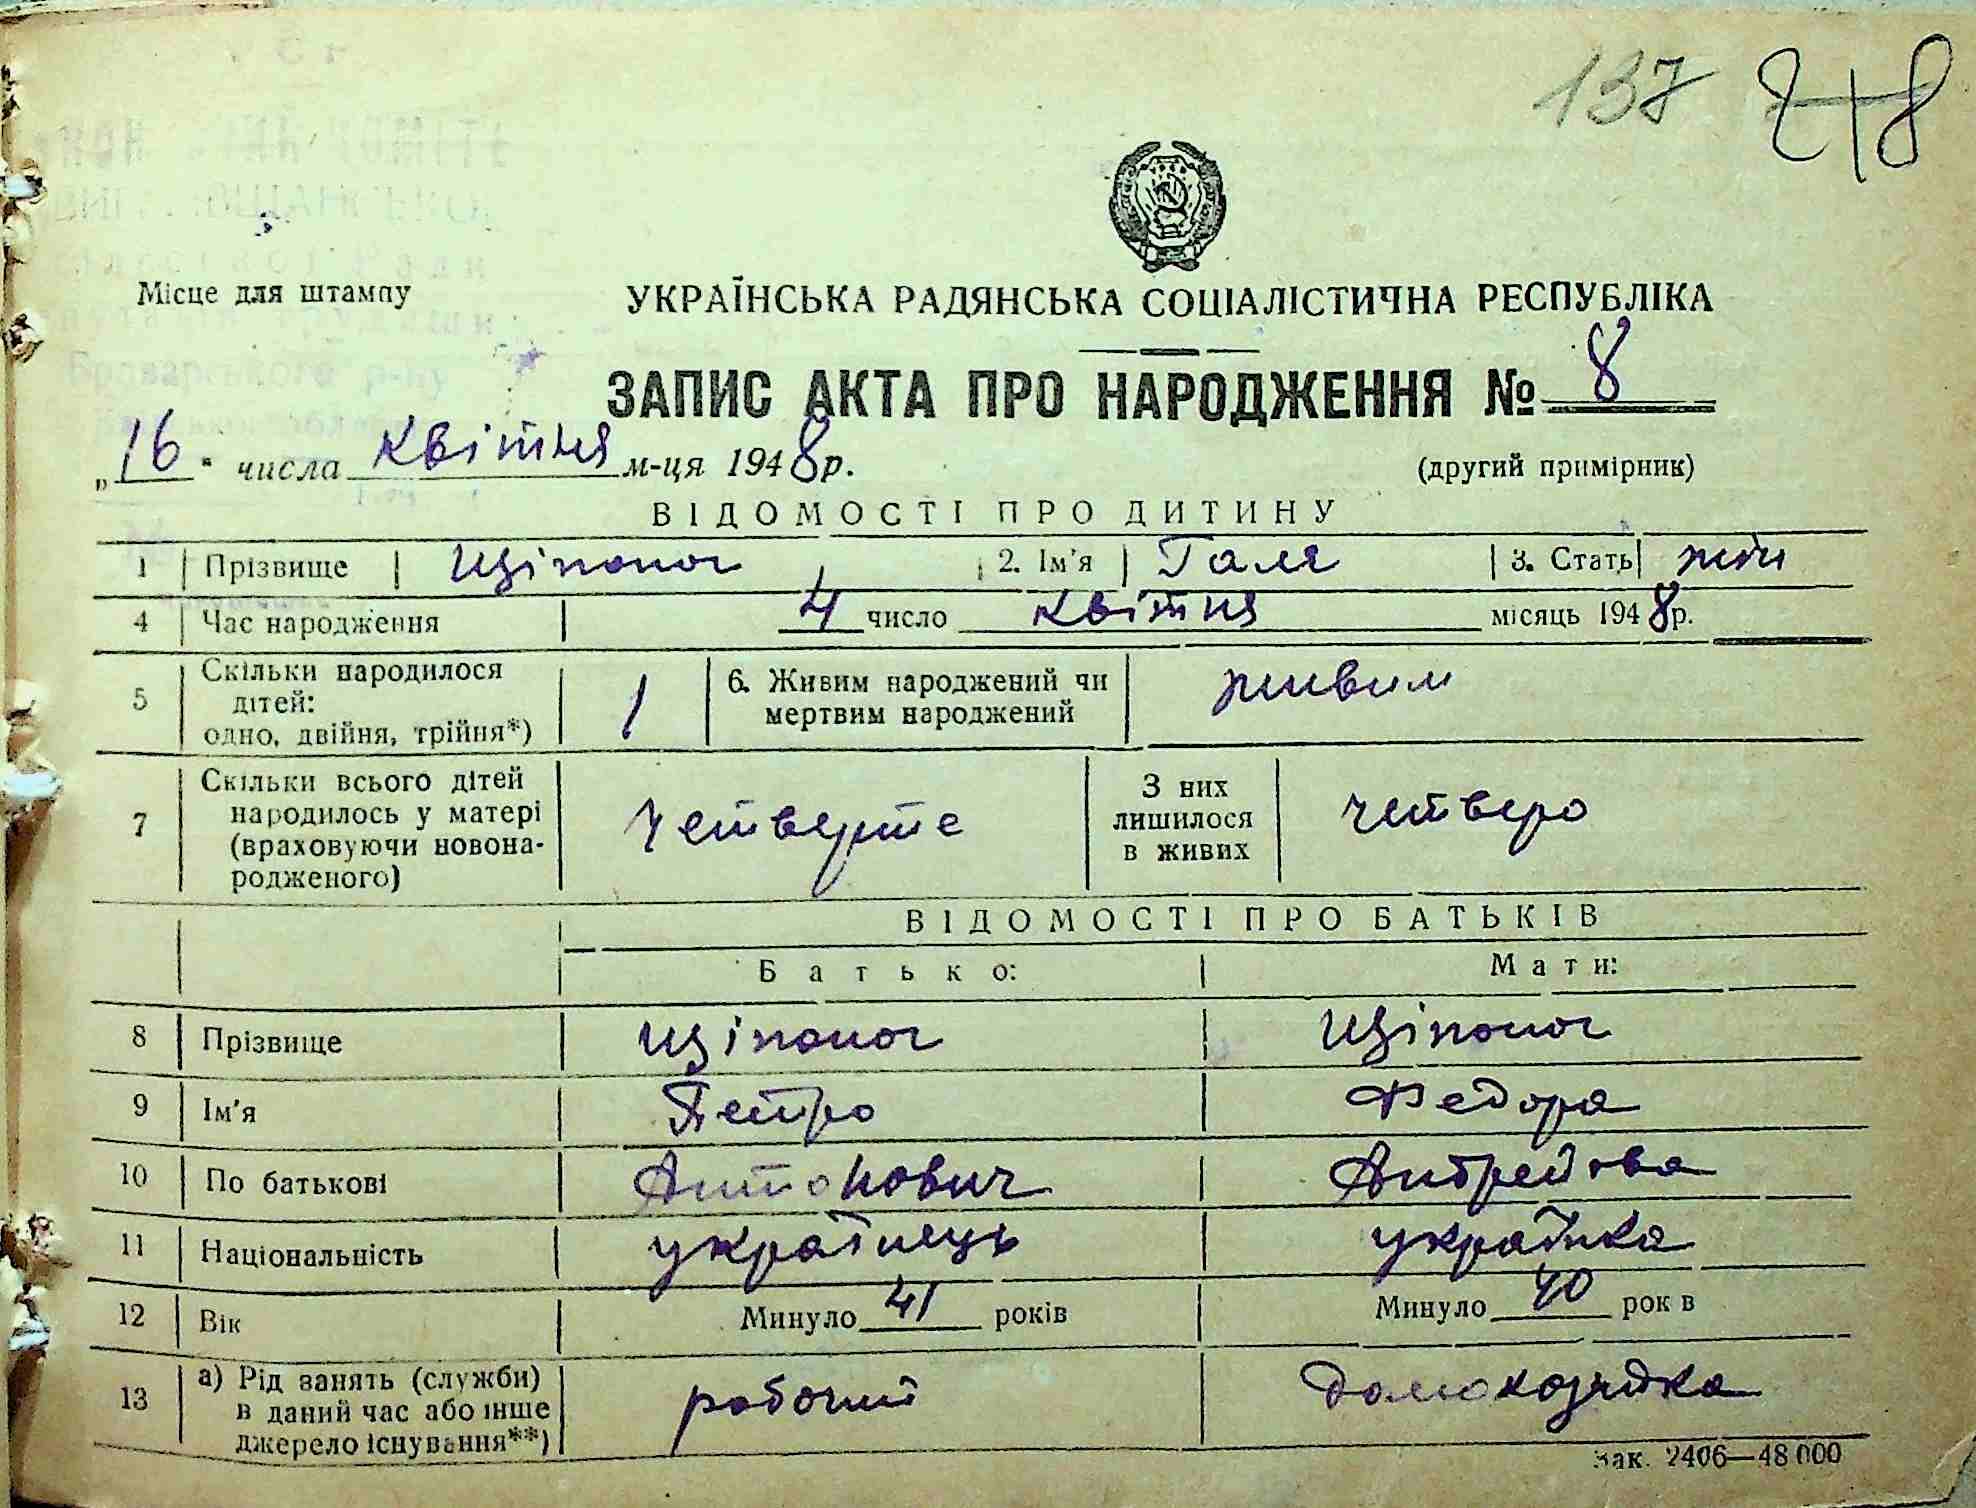 137 218
Місце для штампу
УКРАЇНСЬКА РАДЯНСЬКА СОЦІАЛІСТИЧНА РЕСПУБЛІКА
ЗАПИС АКТА ПРО НАРОДЖЕННЯ № 8
„16" числа квітня м-ця 1948 р.
(другий примірник)
ВІДОМОСТІ ПРО ДИТИНУ
1 Прізвище Щіпоног 2. Ім'я Галя 3. Стать жін
4 Час народження 4 число квітня місяць 1948 р.
5 Скільки народилося дітей: одно, двійня, трійня*) 1 6. Живим народжений чи мертвим народжений живим
7 Скільки всього дітей народилось у матері (враховуючи новонародженого) четверте З них лишилося в живих четверо
ВІДОМОСТІ ПРО БАТЬКІВ
Батько: Мати:
8 Прізвище Щіпоног Щіпоног
9 Ім'я Петро Федора
10 По батькові Антонович Андреївна
11 Національність українець українка
12 Вік Минуло 41 років Минуло 40 рок в
13 а) Рід занять (служби) в даний час або інше джерело існування**) робочий домохозяйка
Зак. 2406—48 000